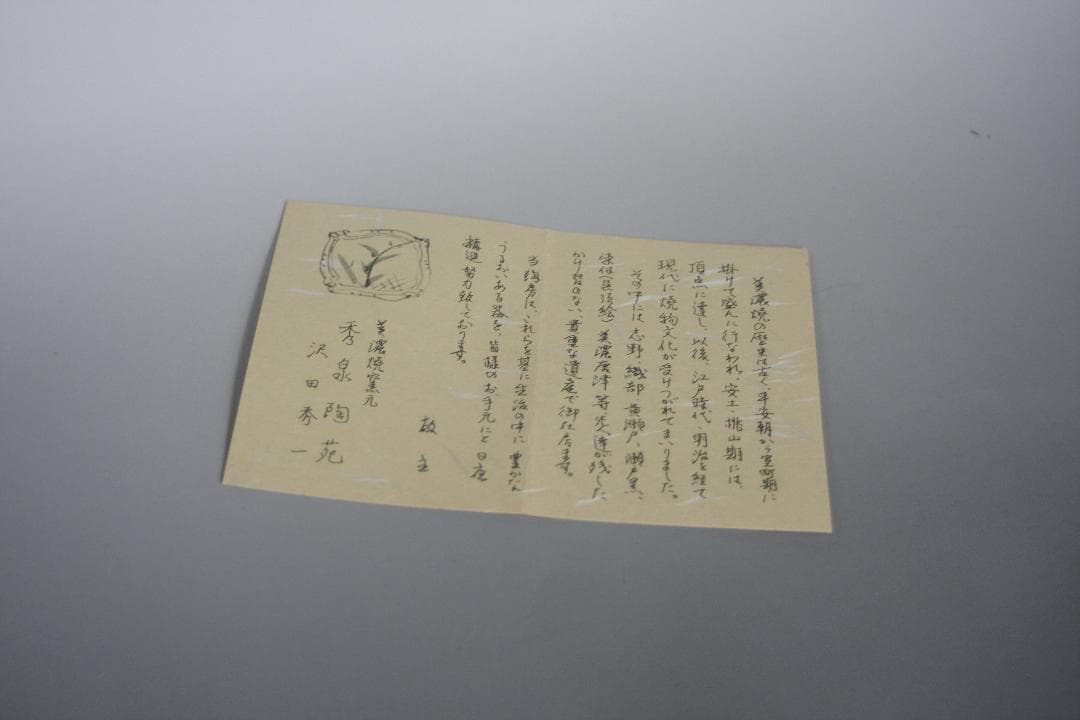 美濃焼の歴史は古く、平安朝から室町期に
掛けて盛んに行なわれ、安土・桃山期には、
頂点に達し、以後、江戸時代・明治を経て
現代に焼物文化が受けつがれてまいりました。
その中には、志野、織部、黄瀬戸、瀬戸黒、
染付(呉須絵)美濃唐津等先人達が残した
かけ替のない、貴重な遺産で御仕居ます。
当陶房は、これらを基に生活の中に豊かな
うるおいある器を、皆様のお手元にと日夜
精進努力致しております。
敬主
美濃焼窯元
秀泉陶苑
沢田秀一